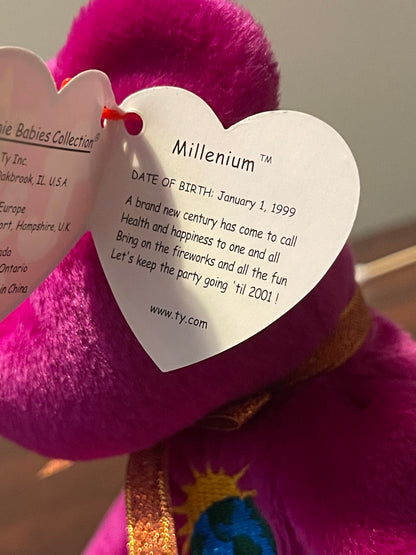 nie Babies Collection®
Ty Inc.
Oakbrook, IL U.S.A
Europe
ort, Hampshire, U.K.
ada
Ontario
in China
Millenium™
DATE OF BIRTH: January 1, 1999
A brand new century has come to call
Health and happiness to one and all
Bring on the fireworks and all the fun
Let's keep the party going 'til 2001 !
www.ty.com